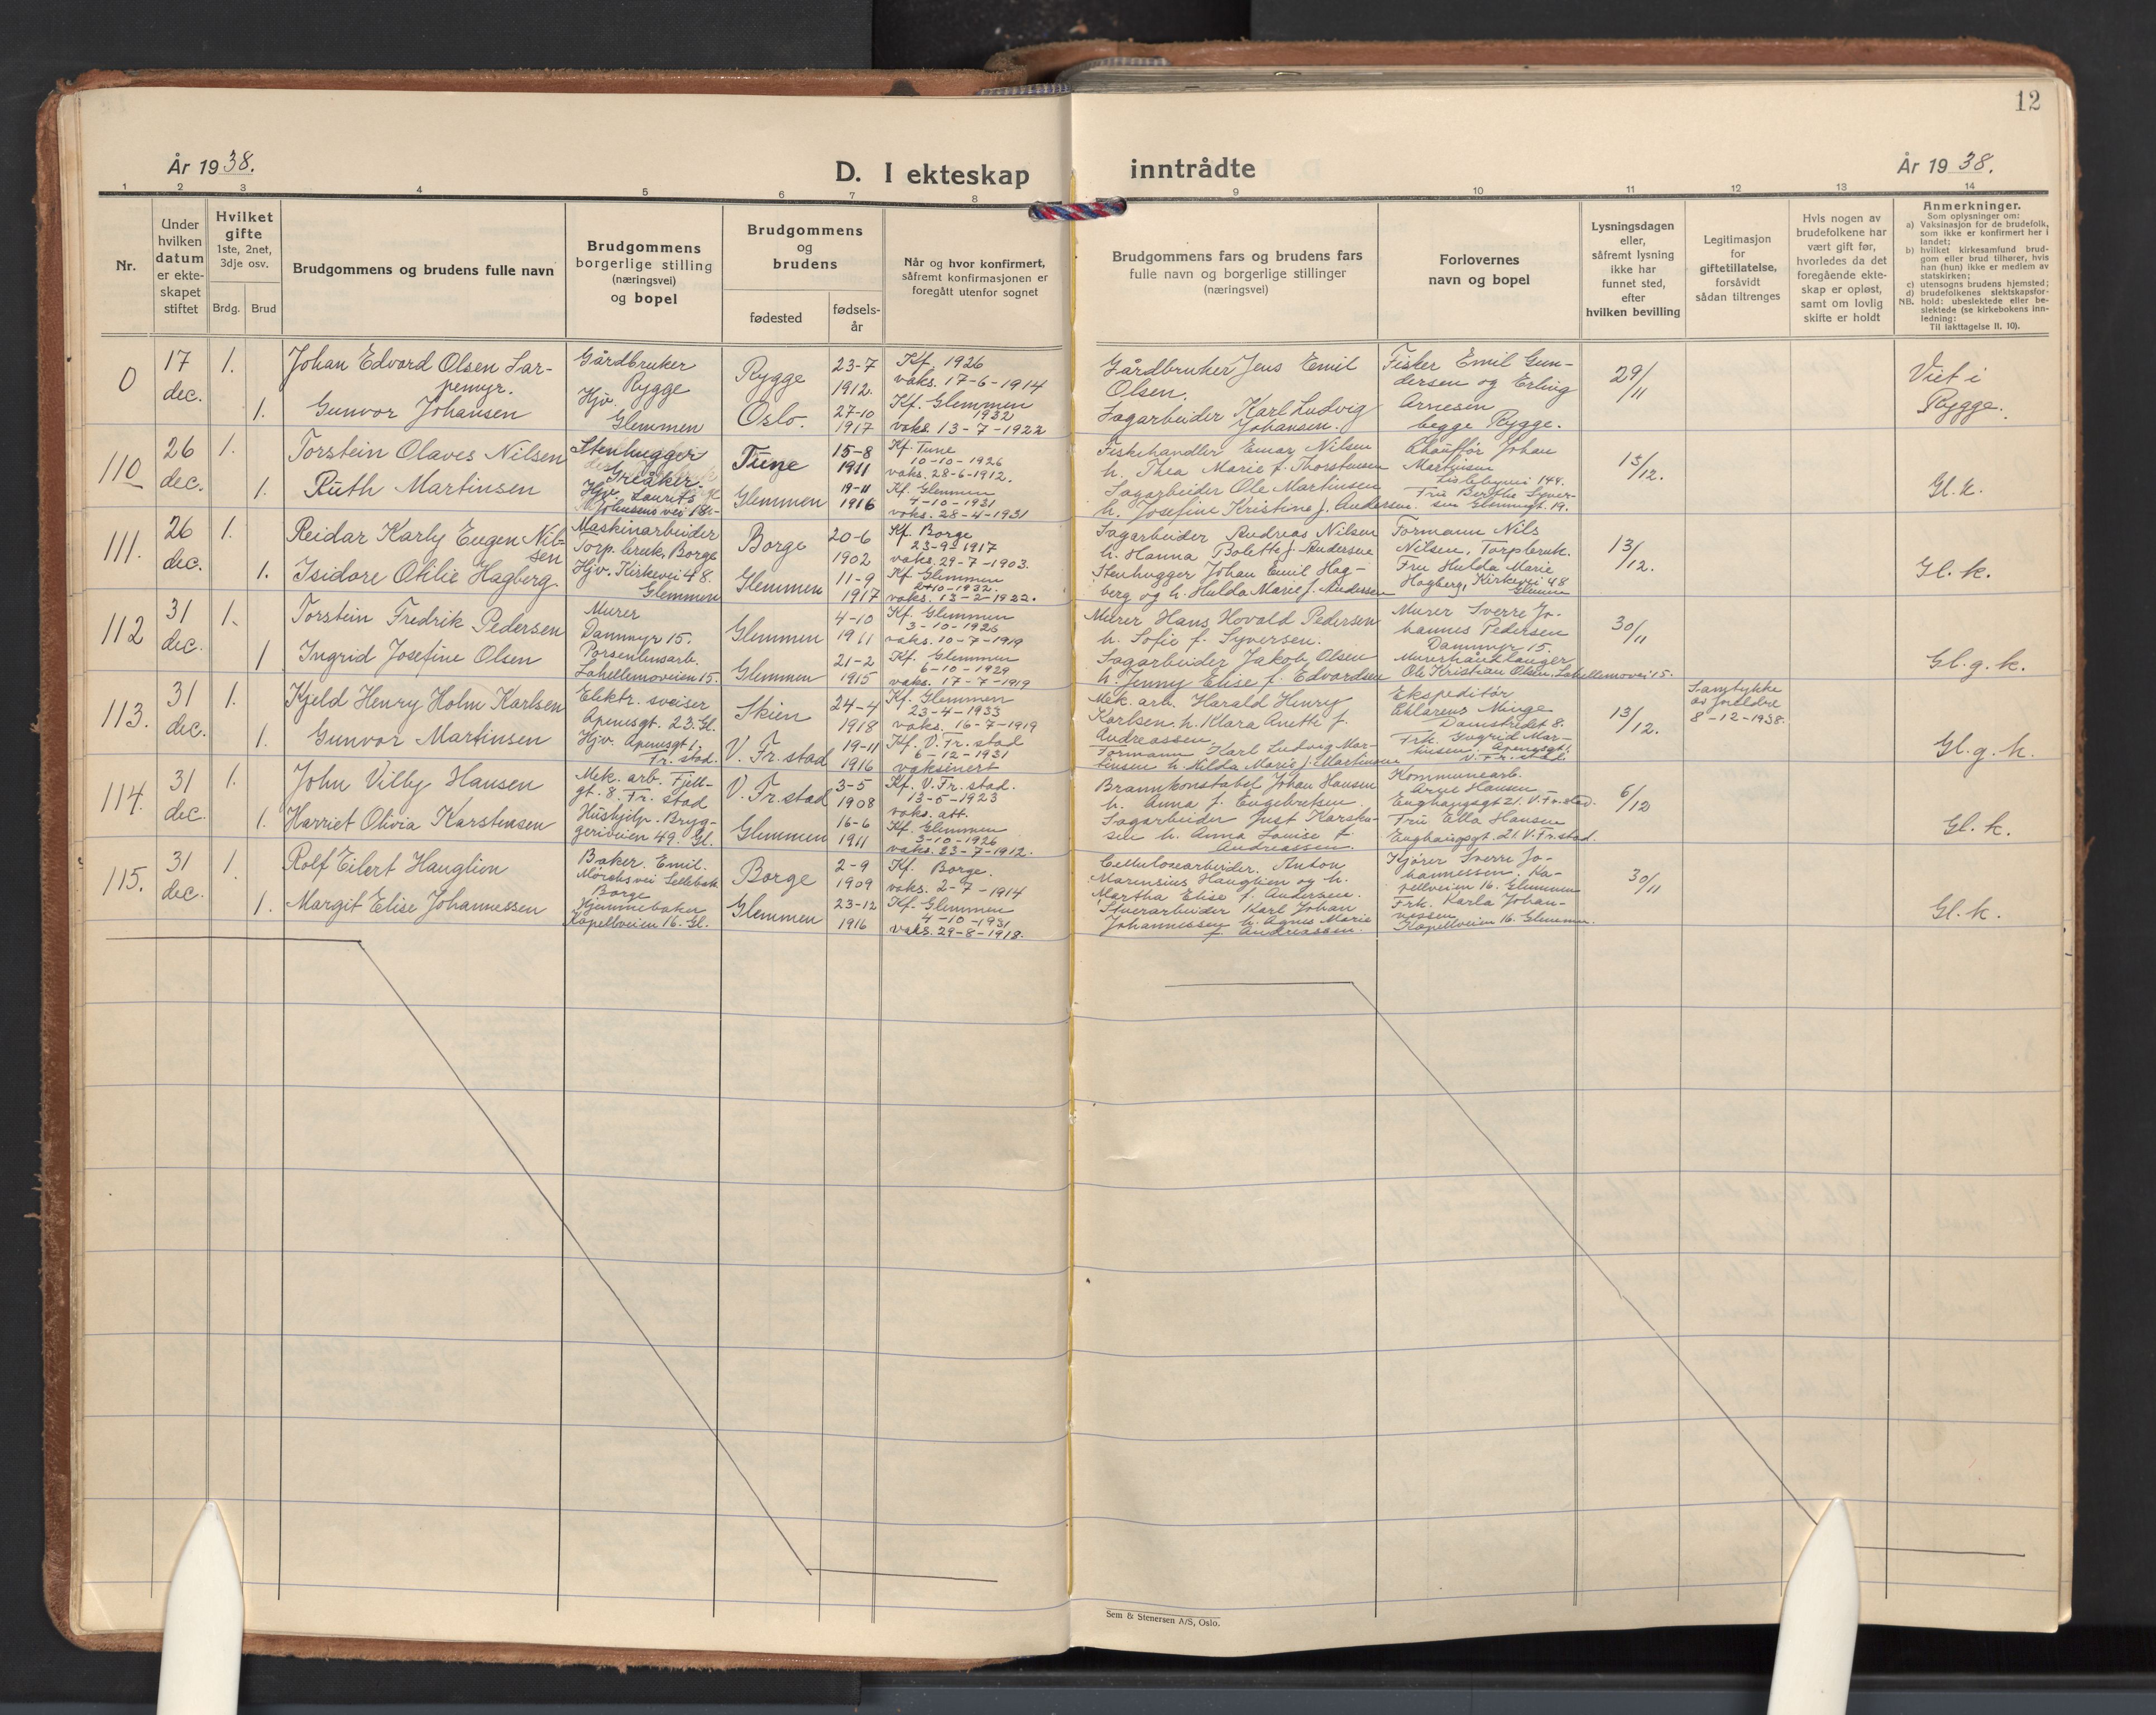 12
År 1938.
D. I ekteskap inntrådte
År 1938.
1 2 3 4 5 6 7 8 9 10 11 12 13 14
Nr.
Under hvilken datum er ekteskapet stiftet
Hvilket gifte
1ste, 2net, 3dje osv.
Brdg. Brud
Brudgommens og brudens fulle navn
Brudgommens borgerlige stilling (næringsvei) og bopel
Brudgommens og brudens
fødested
fødsels-år
Når og hvor konfirmert, såfremt konfirmasjonen er foregått utenfor sognet
Brudgommens fars og brudens fars fulle navn og borgerlige stillinger (næringsvei)
Forlovernes navn og bopel
Lysningsdagen eller, såfremt lysning ikke har funnet sted, efter hvilken bevilling
Legitimasjon for giftetillatelse, forsåvidt sådan tiltrenges
Hvis nogen av brudefolkene har vært gift før, hvorledes da det foregående ekteskap er opløst, samt om lovlig skifte er holdt
Anmerkninger.
Som oplysninger om:
a) Vaksinasjon for de brudefolk, som ikke er konfirmert her i landet;
b) hvilket kirkesamfund brudgom eller brud tilhører, hvis han (hun) ikke er medlem av statskirken;
c) utensogns brudens hjemsted;
d) brudefolkenes slektskapsforhold: ubeslektede eller beslektede (se kirkebokens innledning:
NB.
Til iakttagelse II. 10).
0
17 dec.
1.
Johan Edvard Olsen Larpemyr.
Gårdbruker
Rygge
Rygge
23-7
1912.
Kf. 1926
vaks. 17-6-1914
Gårdbruker Jens Emil
Olsen.
Fisker Emil Gundersen og Erling
Arnesen
begge Rygge.
29/11
Viet i
Rygge.
1.
Gunvor Johansen
Hjv.
Glemmen
Oslo.
27-10
1917
Kf. Glemmen
1932
vaks. 13-7-1922
Sagarbeider Karl Ludvig
Johansen.
110
26 dec.
1.
Torstein Olaves Nilsen
Stenhugger
Greåker.
Tune
15-8
1911
Kf. Tune
10-10-1926
vaks. 28-6-1912.
Fiskehandler Emar Nilsen
h. Thea Marie f. Thorstensen
Chauffør Johan
Martinsen
Lislebyvei 144.
13/12.
Gl. k.
1.
Ruth Martinsen
Hjv. Laurits
Johnsens vei 18
Glemmen
19-11
1916
Kf. Glemmen
4-10-1931
vaks. 28-4-1931
Sagarbeider Ole Martinsen
h. Josefine Kristine f. Andersen.
Fru Berthe Syversen Glemmgt. 19.
111.
26 dec.
1.
Reidar Karly Eugen Nilsen
Maskinarbeider
Torp bruk, Borge
Borge
20-6
1902
Kf. Borge
23-9-1917
vaks. 29-7-1903.
Sagarbeider Andreas Nilsen
h. Hanna Bolette f. Andersen
Formann Nils
Nilsen, Torp bruk.
13/12.
Gl. k.
1.
Isidore Otilie Hagberg
Hjv. Kirkevei 48.
Glemmen
Glemmen
11-9
1917
Kf. Glemmen
2-10-1932.
vaks. 13-2-1922.
Stenhugger Johan Emil Hagberg og h. Hulda Marie f. Andersen
Fru Hulda Marie
Hagberg, Kirkevei 48
Glemmen
112
31 dec.
1.
Torstein Fredrik Pedersen
Murer
Dammyr 15.
Glemmen
4-10
1911
Kf. Glemmen
3-10-1926
vaks. 10-7-1919
Murer Hans Hovald Pedersen
h. Sofie f. Syversen.
Murer Sverre Johannes Pedersen
Dammyr 15.
30/11
Gl. g. k.
1
Ingrid Josefine Olsen
Porselensarb.
Lahellemoveien 15.
Glemmen
21-2
1915
Kf. Glemmen
6-10-1929
vaks. 17-7-1919
Sagarbeider Jakob Olsen
h. Jenny Elise f. Edvardsen
Murerhåndlanger
Ole Kristian Olsen, Lahellemovei 15.
113.
31 dec.
1.
Kjeld Henry Holm Karlsen
Elektr. sveiser
Apenesgt. 23. Gl.
Skien
24-4
1918
Kf. Glemmen
23-4-1933
vaks. 16-7-1919
Mek. arb. Harald Henry
Karlsen. h. Klara Anette f.
Andreassen.
Ekspeditør
Klarens Minge
Damstredet 8.
13/12.
Samtykke
av foreldre
8-12-1938.
Gl. g. k.
1.
Gunvor Martinsen
Hjv. Apenesgt 1,
Fr. stad.
V. Fr. stad
19-11
1916
Kf. V. Fr. stad
6-12-1931
vaksinert
Formann Karl Ludvig Martinsen h. Hilda Marie f. Martinsen
Frk. Ingrid Martinsen. Apenesgt 1
V. Fr. stad
114.
31 dec.
1.
John Vilby Hansen
Mek. arb. Fjellgt. 8. Fr. stad
V. Fr. stad
3-5
1908
Kf. V. Fr. stad.
13-5-1923
vaks. att.
Brannkonstabel Johan Hansen
h. Anna f. Engebretsen
Kommunearb.
Arne Hansen
Enghaugsgt 21. V. Fr. stad.
6/12
Gl. k.
1.
Harriet Olivia Karstensen
Hushjelp. Bryggeriveien 49. Gl.
Glemmen
16-6
1911
Kf. Glemmen
3-10-1926
vaks. 23-7-1912.
Sagarbeider Just Karstensen h. Anna Louise f.
Andreassen.
Fru Ella Hansen
Enghaugsgt. 21. V. Fr. stad.
115.
31 dec.
1.
Rolf Eilert Hauglien
Baker. Emil
Mørchs vei Sellebak
Borge
Borge
2-9
1909
Kf. Borge.
vaks. 2-7-1914
Cellulosearbeider. Anton
Marensius Hauglien og h.
Martha Elise f. Andersen.
Kjører Sverre Johannessen, Kapellveien 16. Glemmen
30/11
Gl. k.
1.
Margit Elise Johannessen
Hjemmebaker
Kapellveien 16. Gl.
Glemmen
23-12
1916
Kf. Glemmen
4-10-1931
vaks. 29-8-1918.
Stuerarbeider Karl Johan
Johannessen h. Agnes Marie
f. Andreassen.
Frk. Karla Johannessen
Kapellveien 16. Glemmen.
Sem & Stenersen A/S, Oslo.